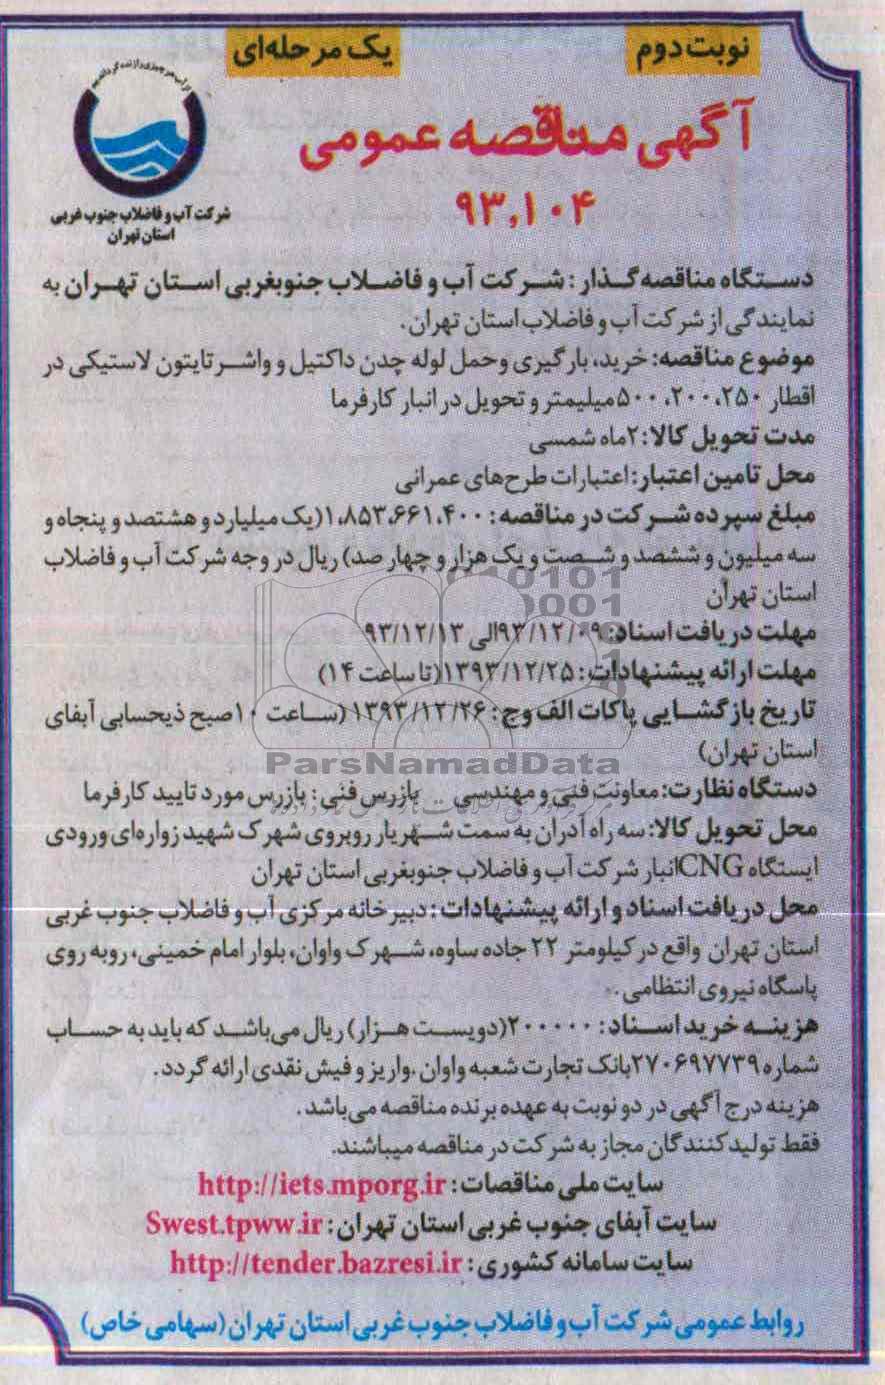 نوبت دوم
یک مرحله‌ای
از آب هر چیزی را زنده گردانیدیم
شرکت آب و فاضلاب جنوب غربی
استان تهران
آگهی مناقصه عمومی
۹۳,۱۰۴
دستگاه مناقصه گذار: شرکت آب و فاضلاب جنوبغربی استان تهران به
نمایندگی از شرکت آب و فاضلاب استان تهران.
موضوع مناقصه: خرید، بارگیری وحمل لوله چدن داکتیل و واشر تایتون لاستیکی در
اقطار ۲۵۰،۲۰۰، ۵۰۰میلیمتر و تحویل در انبار کارفرما
مدت تحویل کالا: ۲ماه شمسی
محل تامین اعتبار: اعتبارات طرح‌های عمرانی
مبلغ سپرده شرکت در مناقصه: ۱،۸۵۳،۶۶۱،۴۰۰(یک میلیارد و هشتصد و پنجاه و
سه میلیون و ششصد و شصت و یک هزار و چهار صد) ریال در وجه شرکت آب و فاضلاب
استان تهران
مهلت دریافت اسناد: ۹۳/۱۲/۰۹الی ۹۳/۱۲/۱۳
مهلت ارائه پیشنهادات: ۱۳۹۳/۱۲/۲۵(تا ساعت ۱۴)
تاریخ بازگشایی پاکات الف و ج: ۱۳۹۳/۱۲/۲۶(ساعت ۱۰صبح ذیحسابی آبفای
استان تهران)
ParsNamadData
دستگاه نظارت: معاونت فنی و مهندسی بازرس فنی: بازرس مورد تایید کارفرما
محل تحویل کالا: سه راه آدران به سمت شهریار روبروی شهرک شهید زواره‌ای ورودی
ایستگاه CNGانبار شرکت آب و فاضلاب جنوبغربی استان تهران
محل دریافت اسناد و ارائه پیشنهادات: دبیرخانه مرکزی آب و فاضلاب جنوب غربی
استان تهران واقع در کیلومتر ۲۲ جاده ساوه، شهرک واوان، بلوار امام خمینی، روبه روی
پاسگاه نیروی انتظامی.
هزینه خرید اسناد: ۲۰۰۰۰۰(دویست هزار) ریال می‌باشد که باید به حساب
شماره ۲۷۰۶۹۷۷۳۹بانک تجارت شعبه واوان .واریز و فیش نقدی ارائه گردد.
هزینه درج آگهی در دو نوبت به عهده برنده مناقصه می‌باشد.
فقط تولیدکنندگان مجاز به شرکت در مناقصه میباشند.
سایت ملی مناقصات: http://iets.mporg.ir
سایت آبفای جنوب غربی استان تهران: Swest.tpww.ir
سایت سامانه کشوری: http://tender.bazresi.ir
روابط عمومی شرکت آب و فاضلاب جنوب غربی استان تهران (سهامی خاص)